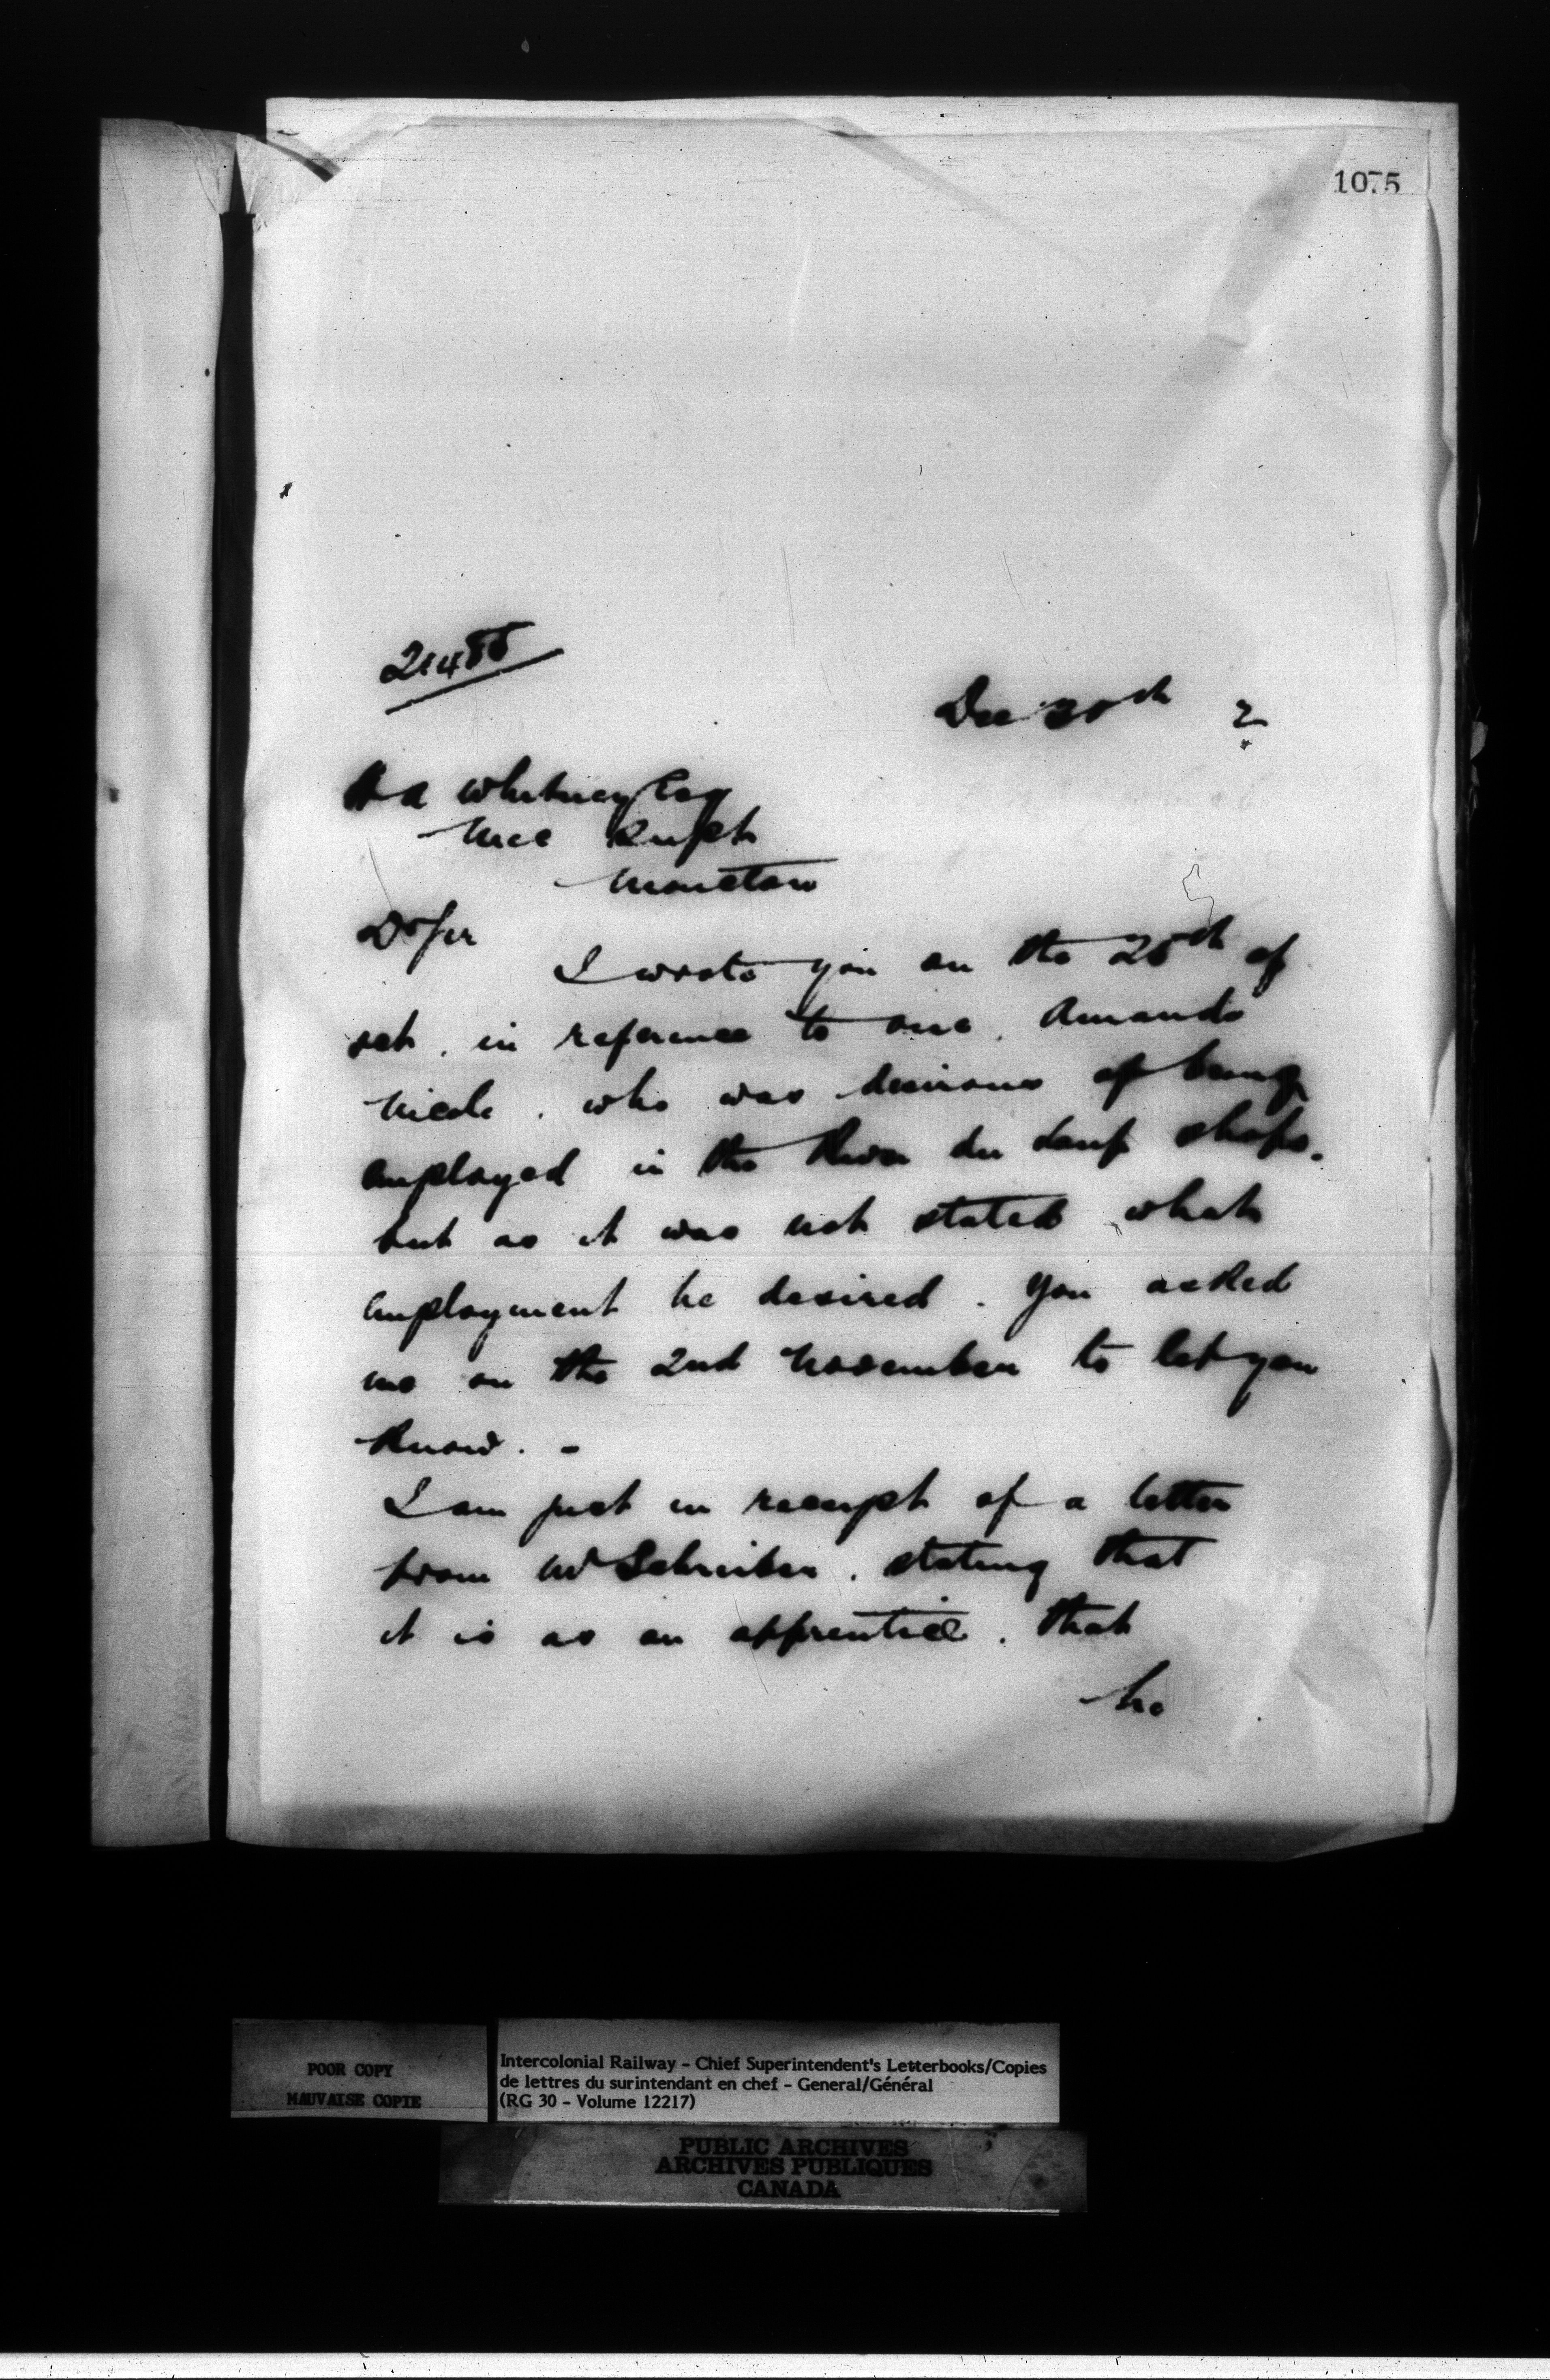 1075
21488
Dec 30th 2
H A Whitney Esq
Mec Supt
Moncton
Dr Sir
I wrote you on the 25th of
Oct. in reference to one, Amando
Nicole. who was desirous of being
employed in the River du Loup shops.
but as it was not stated what
employment he desired. you asked
me on the 2nd November to let you
know. -
I am just in receipt of a letter
from Mr Schreiber. stating that
it is as an apprentice. that
he
POOR COPY
MAUVAISE COPIE
Intercolonial Railway - Chief Superintendent's Letterbooks/Copies
de lettres du surintendant en chef - General/Général
(RG 30 - Volume 12217)
PUBLIC ARCHIVES
ARCHIVES PUBLIQUES
CANADA